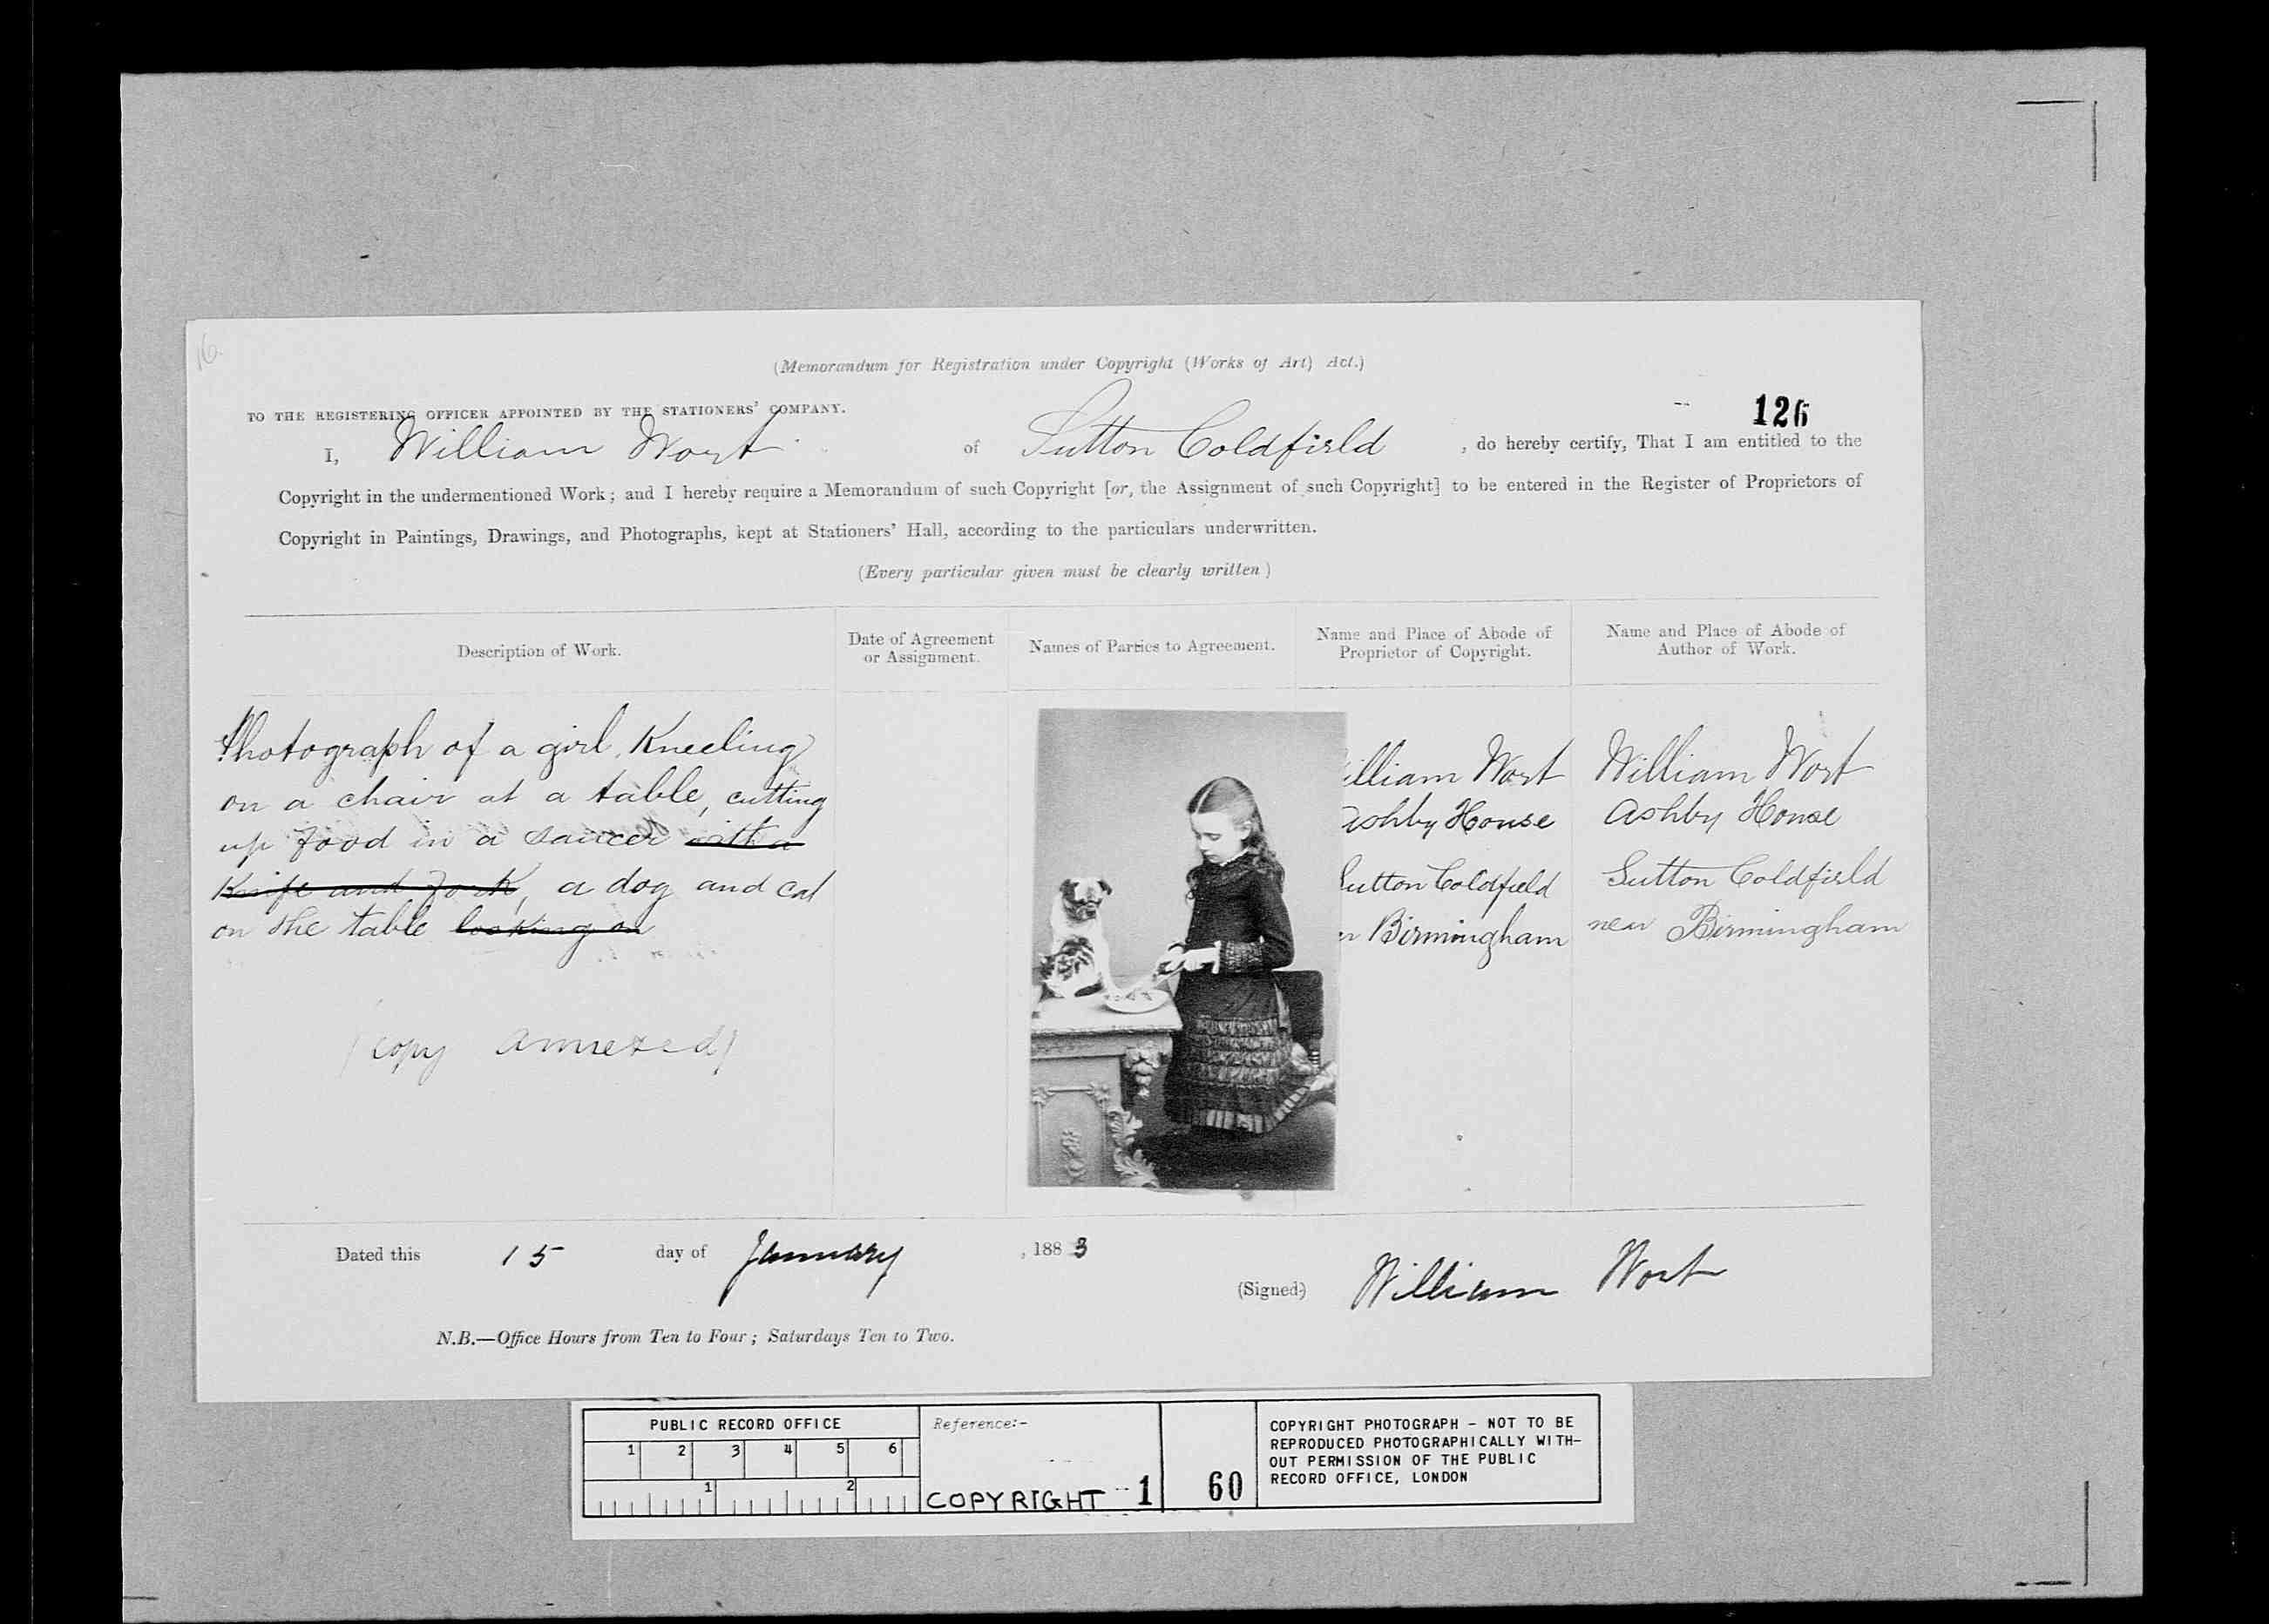 16.
(Memorandum for Registration under Copyright (Works of Art) Act.)
126
TO THE REGISTERING OFFICER APPOINTED BY THE STATIONERS' COMPANY.
I, William Wort of Sutton Coldfield, do hereby certify, That I am entitled to the
Copyright in the undermentioned Work; and I hereby require a Memorandum of such Copyright [or, the Assignment of such Copyright] to be entered in the Register of Proprietors of
Copyright in Paintings, Drawings, and Photographs, kept at Stationers' Hall, according to the particulars underwritten.
(Every particular given must be clearly written)
Description of Work.
Date of Agreement
or Assignment.
Names of Parties to Agreement.
Name and Place of Abode of
Proprietor of Copyright.
Name and Place of Abode of
Author of Work.
Photograph of a girl, Kneeling
on a chair at a table, cutting
up food in a saucer with a
Knife and fork, a dog and cat
on the table looking on
(copy annexed)
illiam Wort
Ashby House
Sutton Coldfield
r Birmingham
William Wort
Ashby House
Sutton Coldfield
near Birmingham
Dated this 15 day of January, 1883
(Signed) William Wort
N.B.—Office Hours from Ten to Four; Saturdays Ten to Two.
PUBLIC RECORD OFFICE
1 2 3 4 5 6
1 2
Reference:-
COPYRIGHT 1
60
COPYRIGHT PHOTOGRAPH - NOT TO BE
REPRODUCED PHOTOGRAPHICALLY WITH-
OUT PERMISSION OF THE PUBLIC
RECORD OFFICE, LONDON